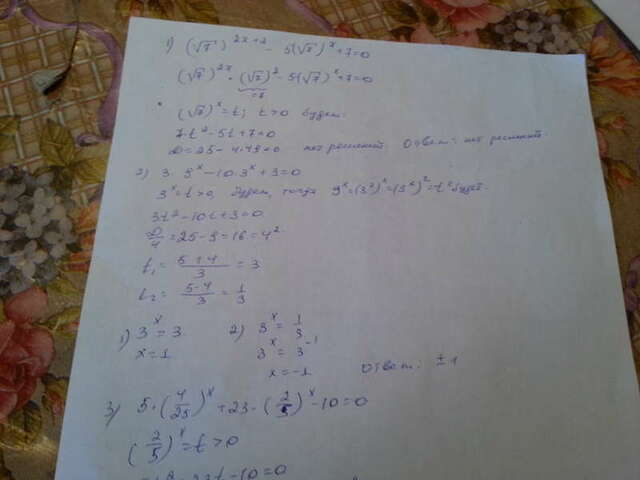 1) (√7)^(2x+2) - 5(√7)^x + 7 = 0
(√7)^(2x) · (√7)^2 - 5(√7)^x + 7 = 0
= 7
(√7)^x = t; t > 0 будем:
7t² - 5t + 7 = 0
D = 25 - 4·49 < 0 нет решений. Ответ: нет решений.
2) 3·9^x - 10·3^x + 3 = 0
3^x = t > 0, будем, тогда 9^x = (3²)^x = (3^x)² = t² будет.
3t² - 10t + 3 = 0
D/4 = 25 - 9 = 16 = 4²
t₁ = (5+4)/3 = 3
t₂ = (5-4)/3 = 1/3
1) 3^x = 3 2) 3^x = 1/3
x = 1 3^x = 3^(-1)
x = -1 Ответ: ±1
3) 5·(4/25)^x + 23·(2/5)^x - 10 = 0
(2/5)^x = t > 0
23t - 10 = 0